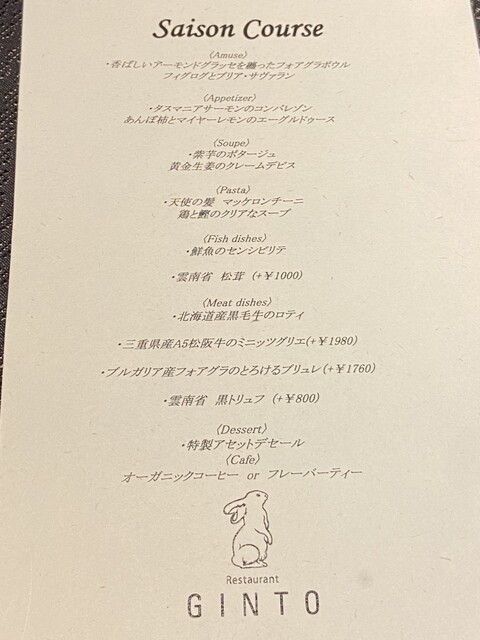 Saison Course
〈Amuse〉
・香ばしいアーモンドグラッセを纏ったフォアグラボウル
フィグログとブリア・サヴァラン
〈Appetizer〉
・タスマニアサーモンのコンパレゾン
あんぽ柿とマイヤーレモンのエーグルドゥース
〈Soupe〉
・紫芋のポタージュ
黄金生姜のクレームデピス
〈Pasta〉
・天使の髪 マッケロンチーニ
鶏と鰹のクリアなスープ
〈Fish dishes〉
・鮮魚のセンシビリテ
・雲南省 松茸 (+￥1000)
〈Meat dishes〉
・北海道産黒毛牛のロティ
・三重県産A5松阪牛のミニッツグリエ(+￥1980)
・ブルガリア産フォアグラのとろけるブリュレ(+￥1760)
・雲南省 黒トリュフ (+￥800)
〈Dessert〉
・特製アセットデセール
〈Cafe〉
オーガニックコーヒー or フレーバーティー
Restaurant
GINTO